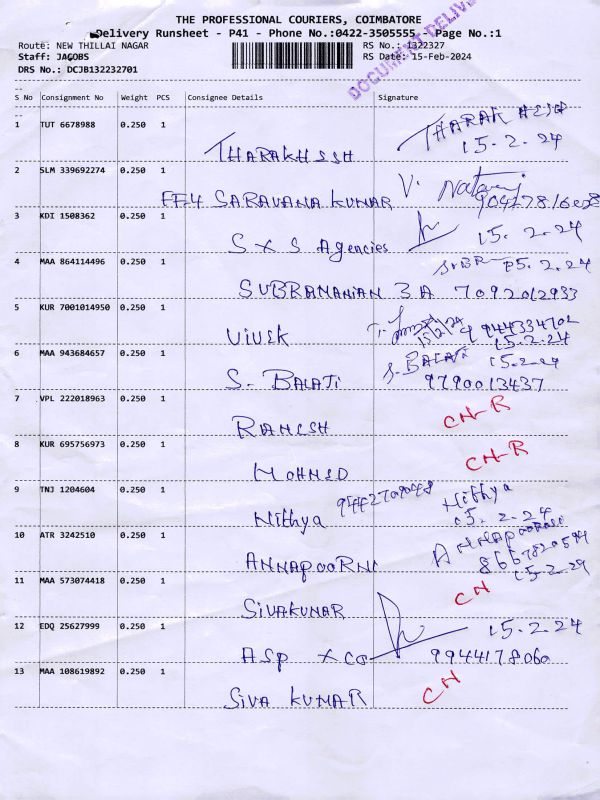 THE PROFESSIONAL COURIERS, COIMBATORE
Delivery Runsheet - P41 - Phone No.:0422-3505555 Page No.:1
Route: NEW THILLAI NAGAR
RS No.: 1322327
Staff: JACOBS
RS Date: 15-Feb-2024
DRS No.: DCJB132232701
DOCUMENT DELIVE
--
S No Consignment No Weight PCS Consignee Details Signature
--
1 TUT 6678988 0.250 1
THARAKHESH THARAKHESH
15.2.24
2 SLM 339692274 0.250 1
FF4 SARAVANA KUMAR V. Nataraj
3 KDI 1508362 0.250 1
S x S Agencies 15.2.24
4 MAA 864114496 0.250 1
SUBRAMANIAN 3A 7092012933
SUBR 15.2.24
5 KUR 7001014950 0.250 1
VIVEK 15/2/24 9944334702
15.2.24
6 MAA 943684657 0.250 1
S. BALAJI S. BALAJI 15.2.24
9790013437
7 VPL 222018963 0.250 1
RAMESH CN-R
8 KUR 695756973 0.250 1
MOHMED CN-R
9 TNJ 1204604 0.250 1
Nithya 9442709048 Nithya
15.2.24
10 ATR 3242510 0.250 1
ANNAPOORNI ANNAPOORANI
8667820594
15.2.24
11 MAA 573074418 0.250 1
SIVAKUMAR CN
12 EDQ 25627999 0.250 1
ASP x CO 15.2.24
9944178060
13 MAA 108619892 0.250 1
SIVA KUMAR CN